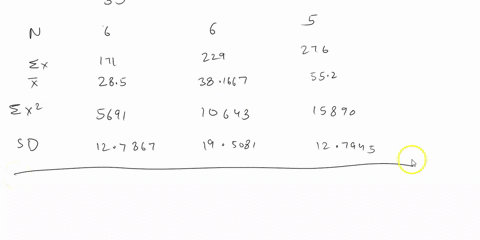 N 6 6 5
Σx 171 229 276
x̄ 28.5 38.1667 55.2
Σx² 5691 10643 15890
SD 12.7367 19.5081 12.7945